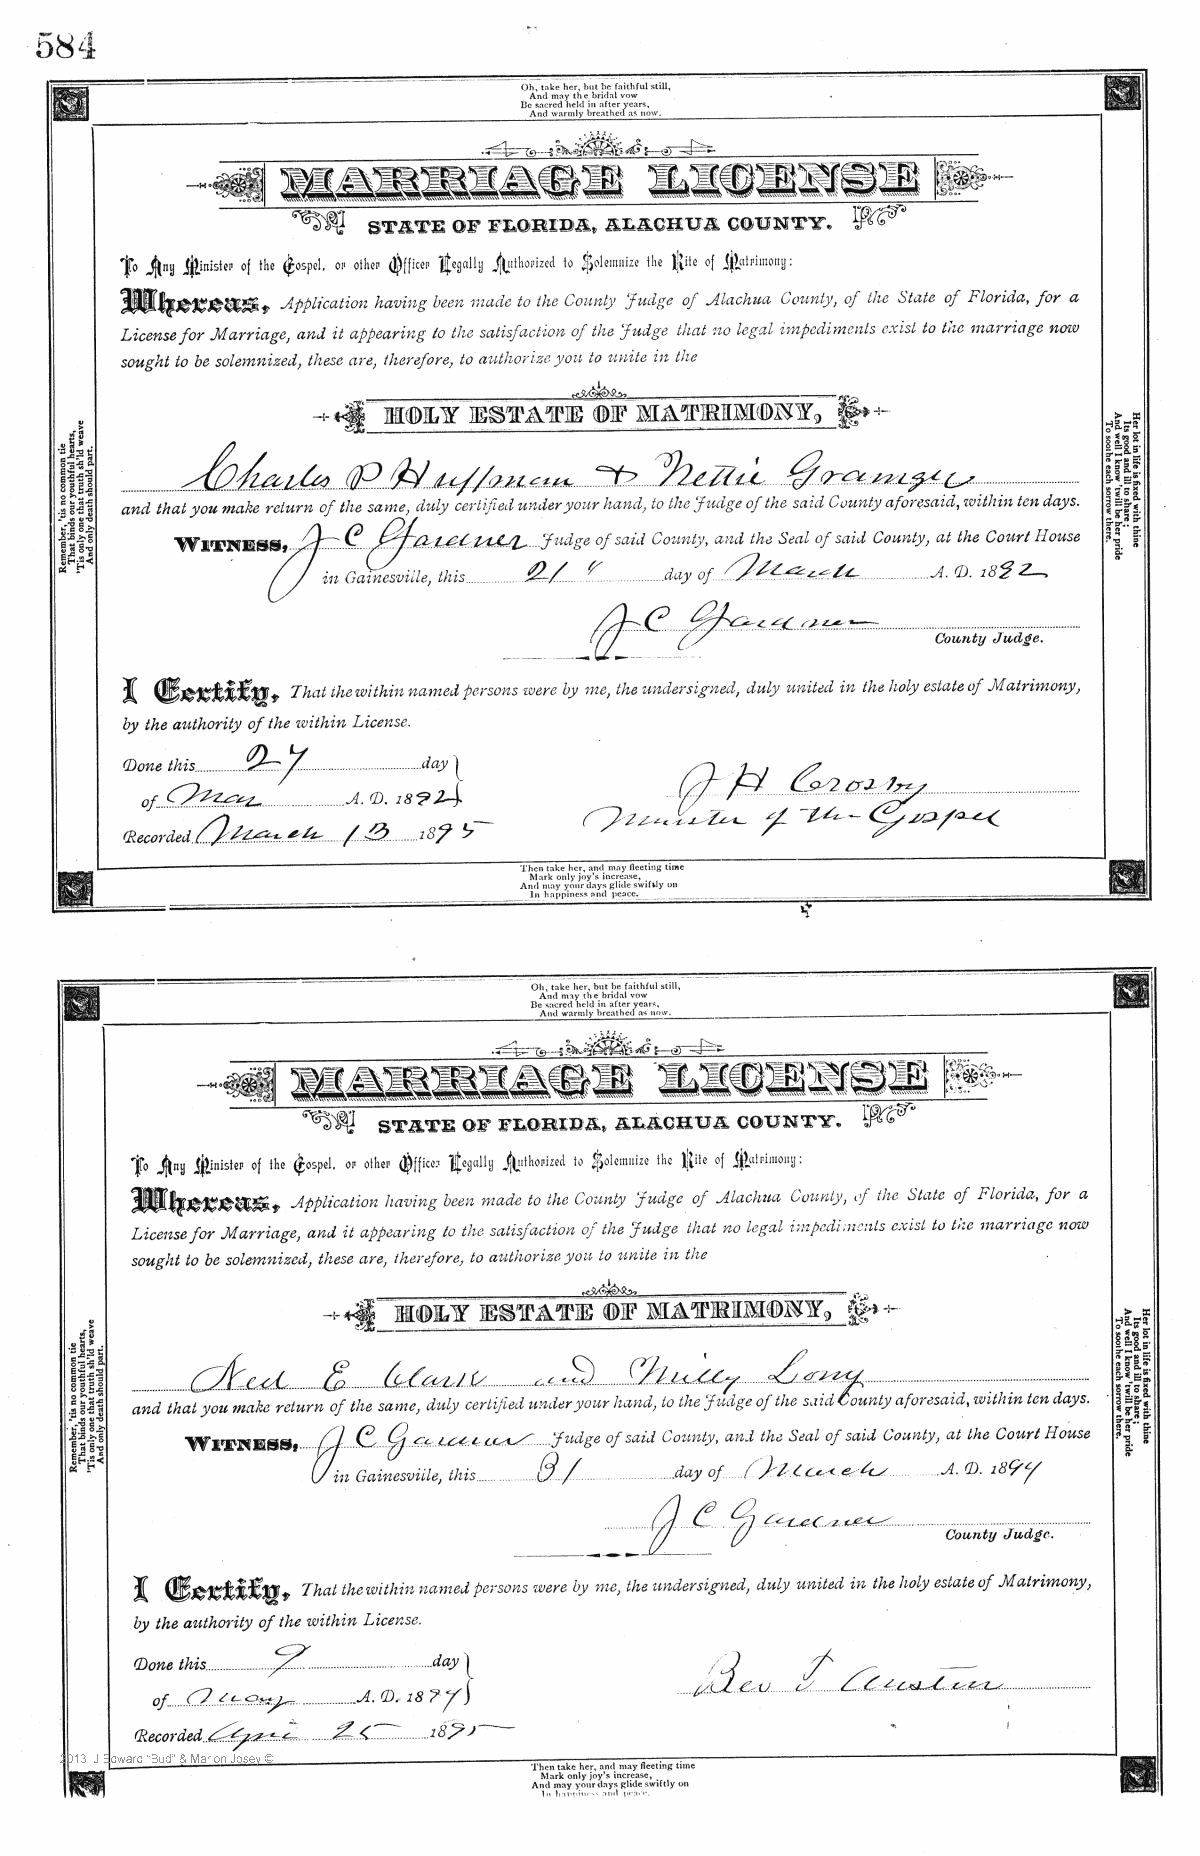 584
Oh, take her, but be faithful still,
And may the bridal vow
Be sacred held in after years,
And warmly breathed as now.
MARRIAGE LICENSE
STATE OF FLORIDA, ALACHUA COUNTY.
To Any Minister of the Gospel, or other Officer Legally Authorized to Solemnize the Rite of Matrimony:
Whereas, Application having been made to the County Judge of Alachua County, of the State of Florida, for a
License for Marriage, and it appearing to the satisfaction of the Judge that no legal impediments exist to the marriage now
sought to be solemnized, these are, therefore, to authorize you to unite in the
HOLY ESTATE OF MATRIMONY,
Charles P Huffman & Nettie Granger
and that you make return of the same, duly certified under your hand, to the Judge of the said County aforesaid, within ten days.
WITNESS, J C Gardner Judge of said County, and the Seal of said County, at the Court House
in Gainesville, this 21" day of March A. D. 1892
J C Gardner
County Judge.
I Certify, That the within named persons were by me, the undersigned, duly united in the holy estate of Matrimony,
by the authority of the within License.
Done this 27 day
of Mar A. D. 1892
J H Crosby
Minister of the Gospel
Recorded March 13 1895
Remember, 'tis no common tie
That binds our youthful hearts,
'Tis only one that truth sh'ld weave
And only death should part.
Her lot in life is fixed with thine
Its good and ill to share;
And well I know 'twill be her pride
To soothe each sorrow there.
Then take her, and may fleeting time
Mark only joy's increase,
And may your days glide swiftly on
In happiness and peace.
Oh, take her, but be faithful still,
And may the bridal vow
Be sacred held in after years,
And warmly breathed as now.
MARRIAGE LICENSE
STATE OF FLORIDA, ALACHUA COUNTY.
To Any Minister of the Gospel, or other Officer Legally Authorized to Solemnize the Rite of Matrimony:
Whereas, Application having been made to the County Judge of Alachua County, of the State of Florida, for a
License for Marriage, and it appearing to the satisfaction of the Judge that no legal impediments exist to the marriage now
sought to be solemnized, these are, therefore, to authorize you to unite in the
HOLY ESTATE OF MATRIMONY,
Ned E Clark and Milly Long
and that you make return of the same, duly certified under your hand, to the Judge of the said County aforesaid, within ten days.
WITNESS, J C Gardner Judge of said County, and the Seal of said County, at the Court House
in Gainesville, this 31 day of March A. D. 1894
J C Gardner
County Judge.
I Certify, That the within named persons were by me, the undersigned, duly united in the holy estate of Matrimony,
by the authority of the within License.
Done this 9 day
of May A. D. 1894
Rev T Austin
Recorded Apri 25 1895
Remember, 'tis no common tie
That binds our youthful hearts,
'Tis only one that truth sh'ld weave
And only death should part.
Her lot in life is fixed with thine
Its good and ill to share;
And well I know 'twill be her pride
To soothe each sorrow there.
2013 J Edward "Bud" & Marion Josey ©
Then take her, and may fleeting time
Mark only joy's increase,
And may your days glide swiftly on
In happiness and peace.